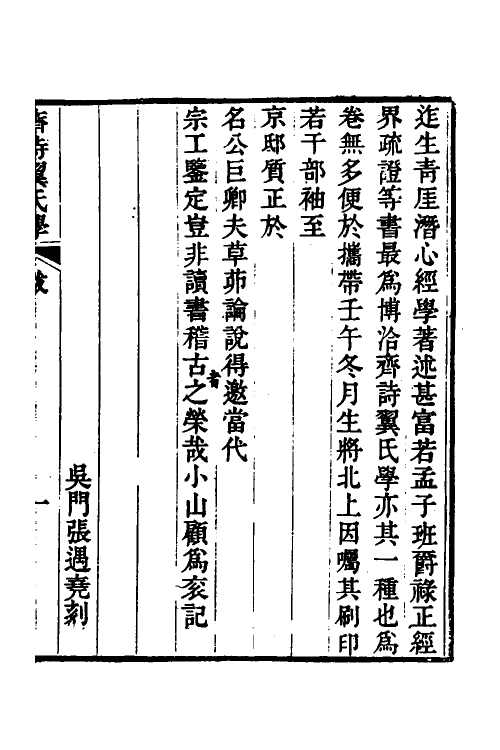 迮生靑厓潛心經學著述甚富若孟子班爵祿正經
界疏證等書最爲博洽齊詩翼氏學亦其一種也爲
卷無多便於攜帶壬午冬月生將北上因囑其刷印
若干部袖至
京邸質正於
名公巨卿夫草茆論說得邀當代
宗工鑒定豈非讀書稽古者之榮哉小山顧爲
記
吳門張遇堯刻
齊詩翼氏學
跋
一